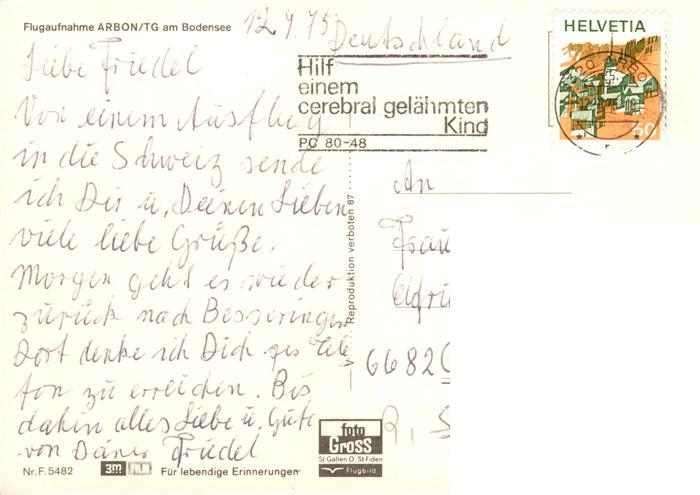 Flugaufnahme ARBON/TG am Bodensee
12.9.75
Deutschland
HELVETIA
Hilf
einem
cerebral gelähmten
Kind
PC 80-48
Liebe Friedel
Von einem Ausflug
in die Schweiz sende
ich Dir u. Deinen Lieben
viele liebe Grüße.
Morgen geht es wieder
zurück nach Besseringen
Dort denke ich Dich per Tele
fon zu erreichen. Bis
dahin alles Liebe u. Gute
von Deiner Friedel
Reproduktion verboten 87
An
Frau
6682
foto
Gross
St Gallen O St Fiden
Flugbild
Nr. F. 5482
Für lebendige Erinnerungen